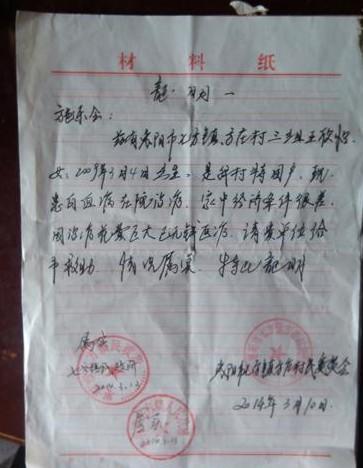 材料纸
证明
施乐会：
兹有枣阳市七方镇方庄村三组王欣怡
女，2009年3月4日出生，是我村特困户，现
患白血病在院治病。家中经济条件很差，
因治病花费巨大已无钱医治。请贵单位给
予救助。情况属实，特此证明
属实
2014.3.13
枣阳市七方镇方庄村民委员会
2014年3月10日